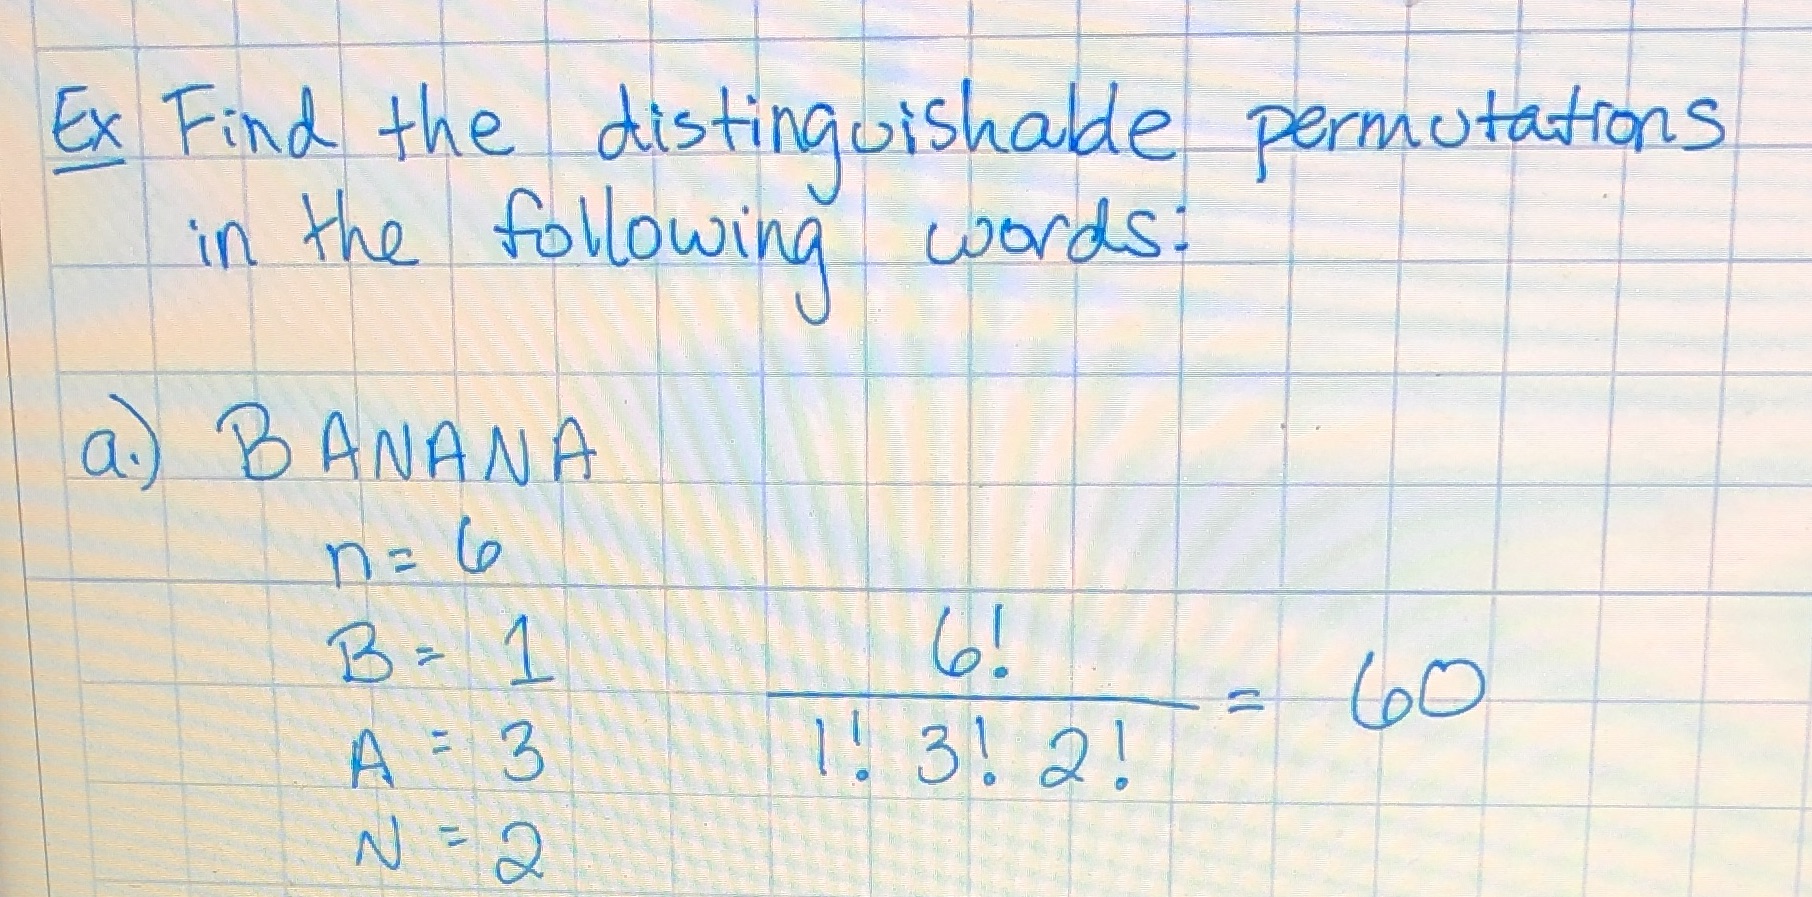 Ex Find the distinguishable permutations
in the following words:
a.) BANANA
n = 6
B = 1
6!
A = 3
1! 3! 2!
= 60
N = 2